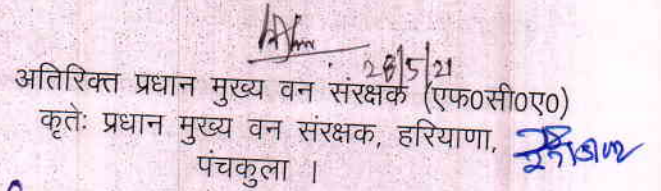 28/5/21
अतिरिक्त प्रधान मुख्य वन संरक्षक (एफ0सी0ए0)
कृतेः प्रधान मुख्य वन संरक्षक, हरियाणा,
पंचकुला ।